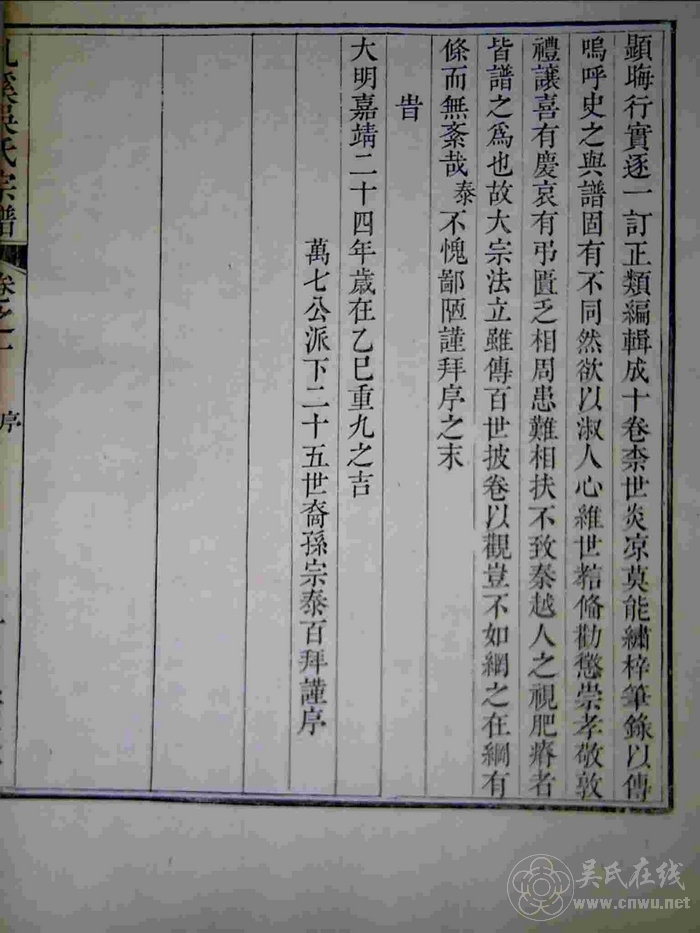 顯晦行實逐一訂正類編輯成十卷柰世炎凉莫能繡梓筆錄以傳
嗚呼史之與譜固有不同然欲以淑人心維世
勸懲崇孝敬敦
禮讓喜有慶哀有弔匱乏相周患難相扶不致秦越人之視肥瘠者
皆譜之爲也故大宗法立雖傳百世披卷以觀豈不如網之在綱有
條而無紊哉泰不愧鄙陋謹拜序之末
旹
大明嘉靖二十四年歲在乙巳重九之吉
萬七公派下二十五世裔孫宗泰百拜謹序
溪吳氏宗譜
卷之一
序
吴氏在线
www.cnwu.net